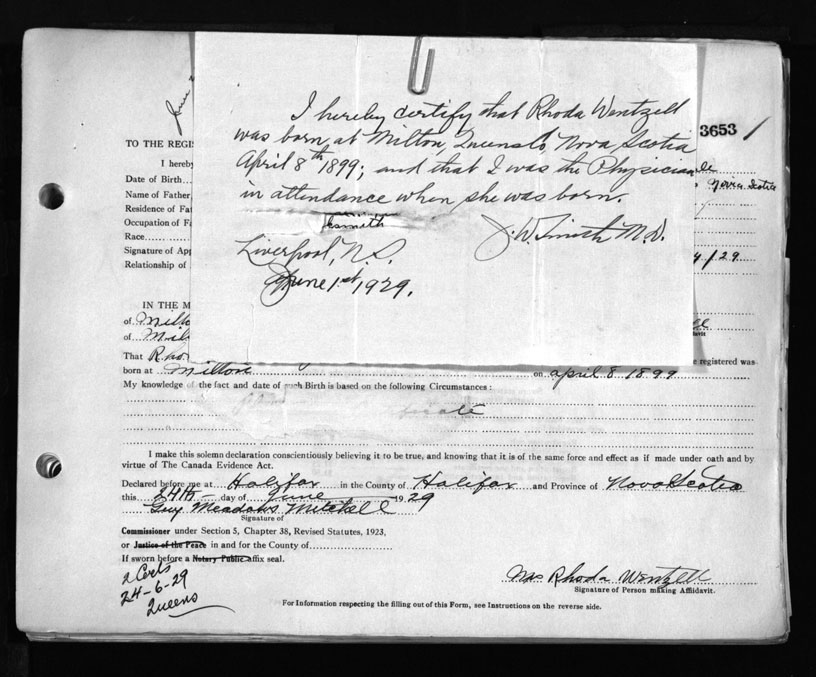 June
I hereby certify that Rhoda Wentzell
was born at Milton, Queens Co Nova Scotia
April 8th 1899; and that I was the Physician
in attendance when she was born.
J. W. Smith M.D.
Liverpool, N.S.
June 1st, 1929.
3653 1
TO THE REGIS
I hereb
Date of Birth
Nova Scotia
Name of Father
Residence of Fat
Occupation of Fa
Race
Signature of App
/29
Relationship of
IN THE M
of Milto
of Mil
davit
That Rho
e registered was
born at Milton on April 8 1899
My knowledge of the fact and date of such Birth is based on the following Circumstances:
I make this solemn declaration conscientiously believing it to be true, and knowing that it is of the same force and effect as if made under oath and by
virtue of The Canada Evidence Act.
Declared before me at Halifax in the County of Halifax and Province of Nova Scotia
this 24th day of June 1929
Guy Meadows Mitchell
Signature of
Commissioner under Section 5, Chapter 38, Revised Statutes, 1923,
or Justice of the Peace in and for the County of
If sworn before a Notary Public affix seal.
2 Certs
24-6-29
Queens
Mrs Rhoda Wentzell
Signature of Person making Affidavit.
For Information respecting the filling out of this Form, see Instructions on the reverse side.